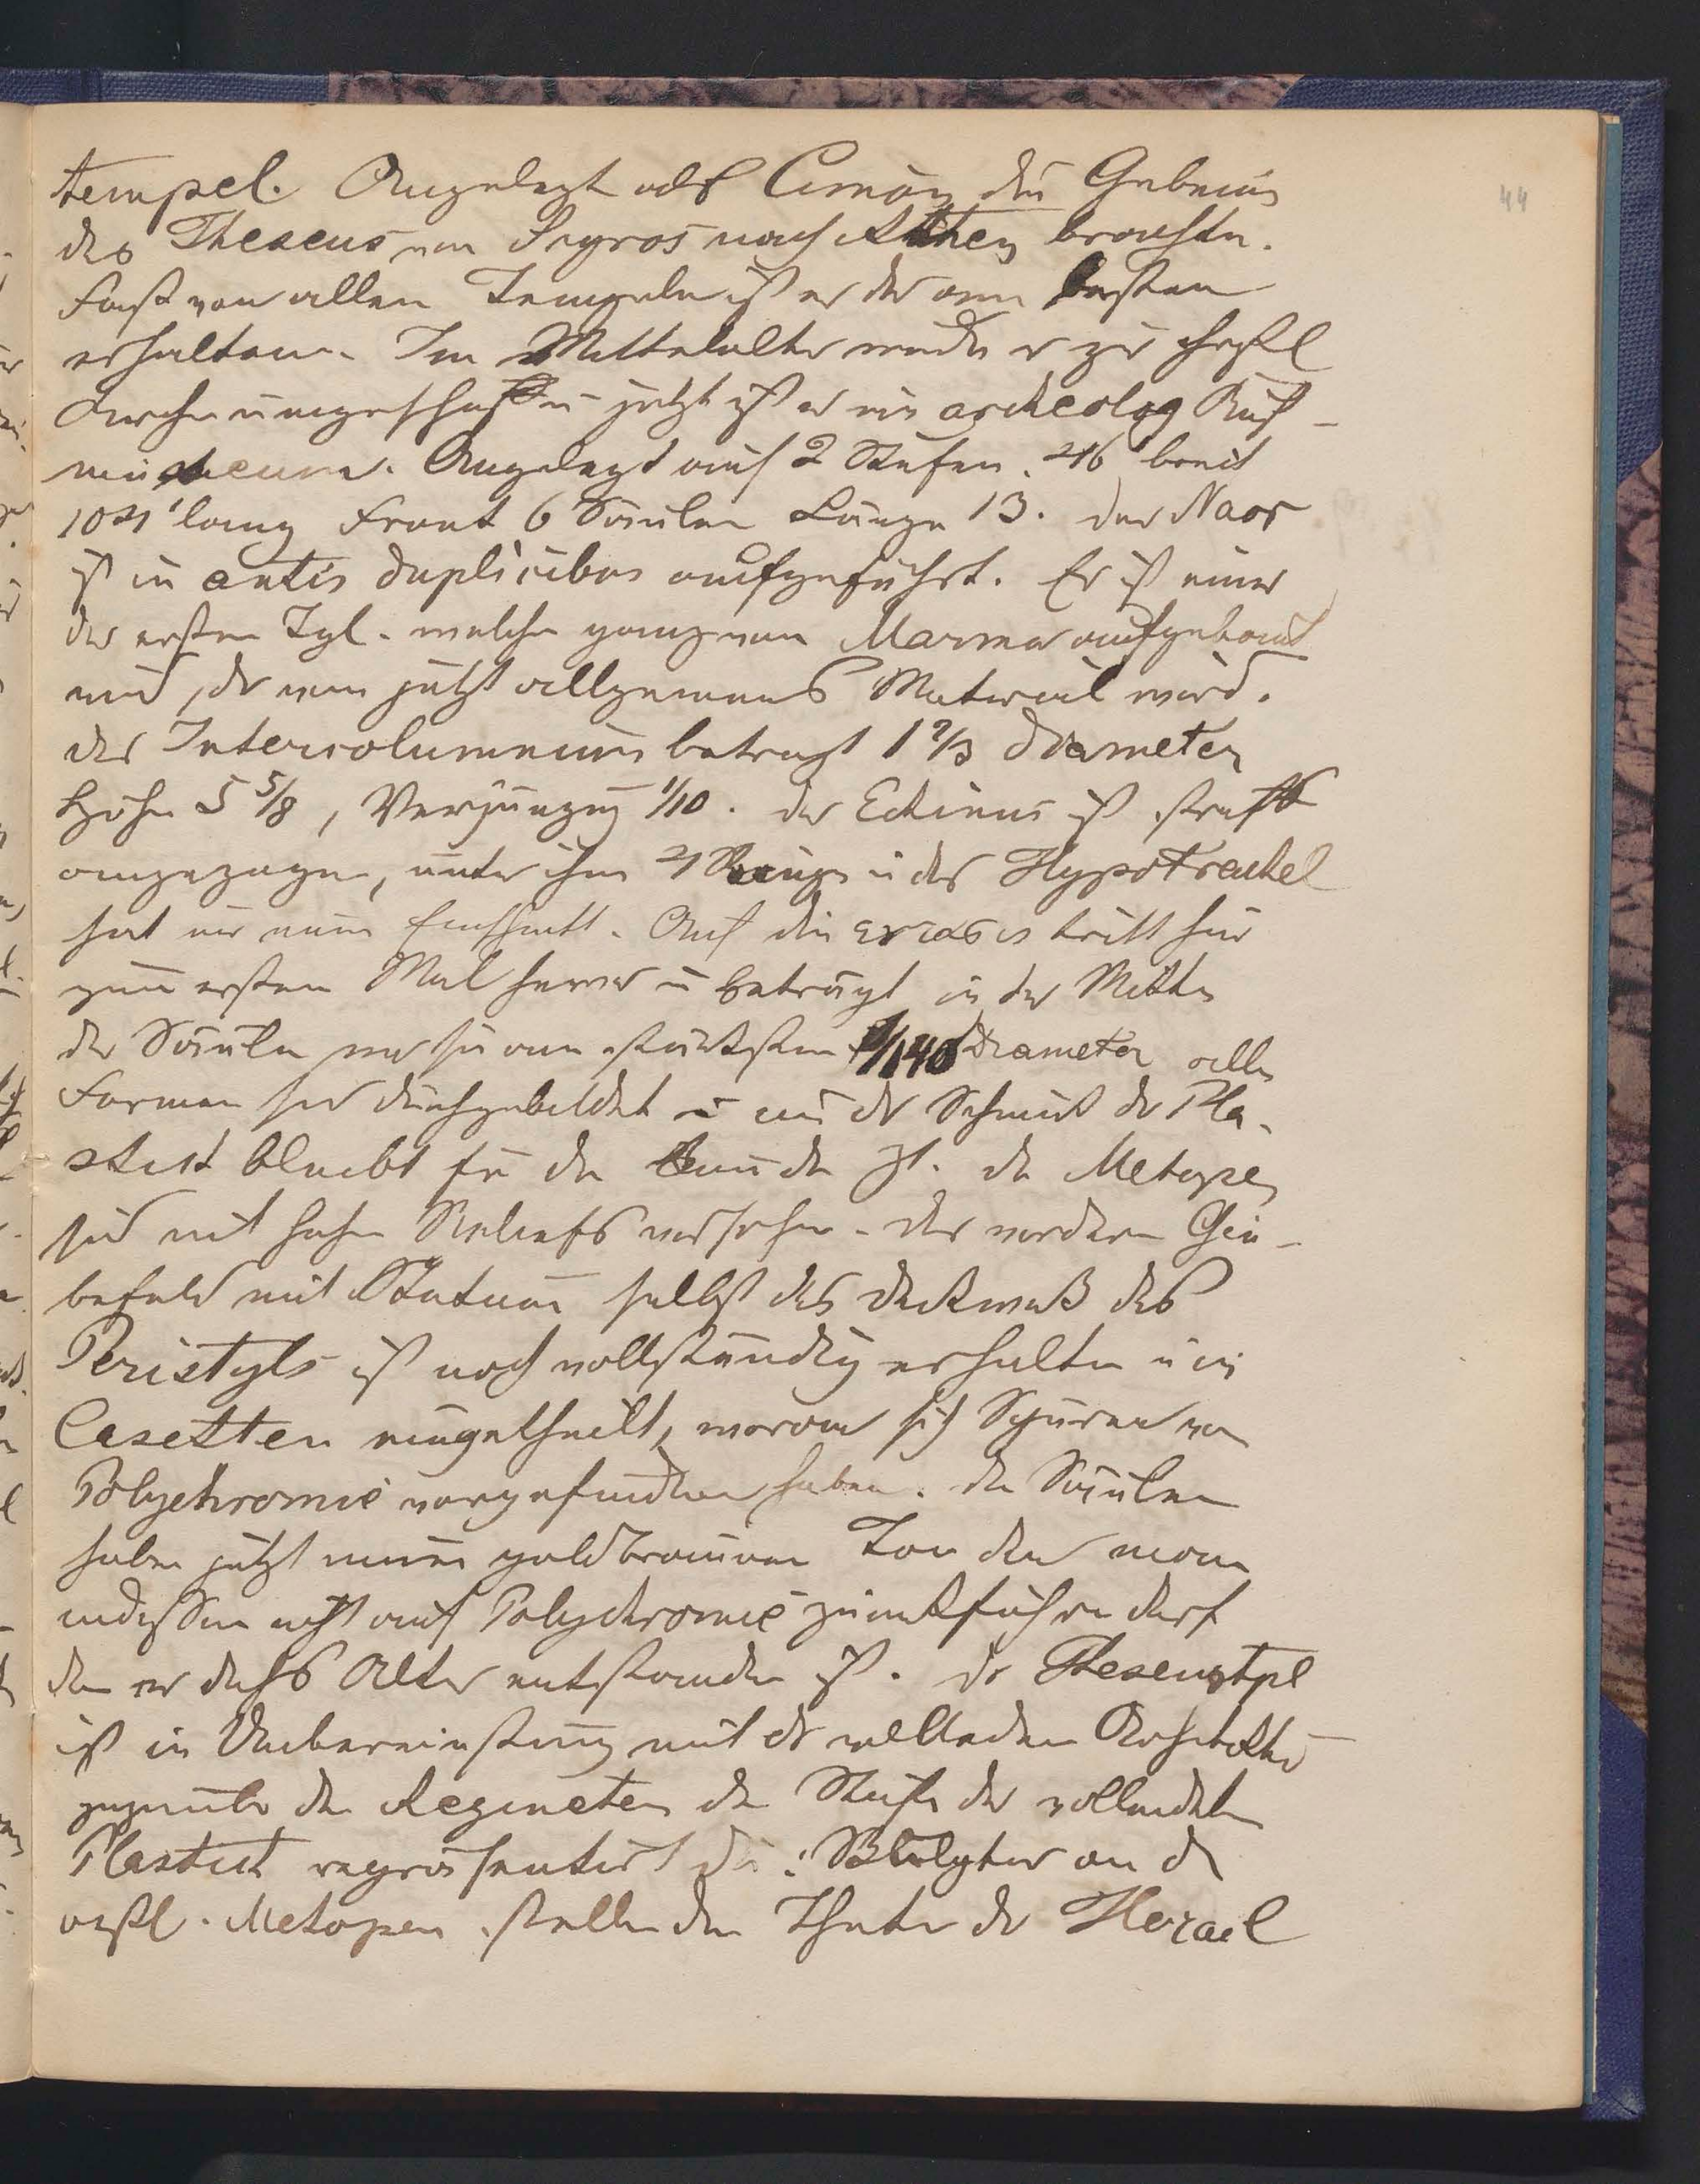 44
tempel. Angelegt als Cimon die Gebeine
des Theseus von Scyros nach Athen brachte.
Fast von allen Tempeln ist er der am besten
erhaltene. Im Mittelalter wurde er zur christl
Kirche umgeschaffen u jetzt ist er ein archeolog
museum. Angelegt auf 2 Stufen. 46 breit
104' lang Front 6 Säulen Länge 13. der Naos
ist in antis duplicibus aufgeführt. Er ist einer
der ersten Tpl. welche ganz von Marmor aufgebaut
sind, der von jetzt allgemeines Material wird.
der Intercolumnium betragt 1 2/3 Diameter
Höhe 5 5/8, Verjüngung 1/10. der Echinus ist straff
angezogen, unter ihm 4 Ringe u der Hypotrachel
hat nur einen Einschnitt. Auch die εντασις tritt hier
zum ersten Mal hervor u beträgt in der Mitte
der Säule wo sie am stärksten 1/140 Diameter alle
Formen sind durchgebildet u nur der Schmuck der Pla-
stick bleibt für die zk. die Metopen
sind mit hohen Reliefs versehen. Das vordere Gie-
befeld mit Statuen selbst das Deckwerk des
Peristyls ist noch vollständig erhalten u in
Casetten eingetheilt, woran sich Spuren von
Polychromie vorgefunden haben. die Säulen
haben jetzt einen goldbraunen Ton den man
indessen nicht auf Polychromie zurückführen darf
da er durchs Alter entstanden ist. der Theseustpl
ist in Uebereinstimmung mit der vollendeten Architektur
gegenüber den Aegineten die Stufe der vollendeten
Plastick repräsentirt die: Skulptur an d
östl. Metopen stellen den Thaten der Heracl